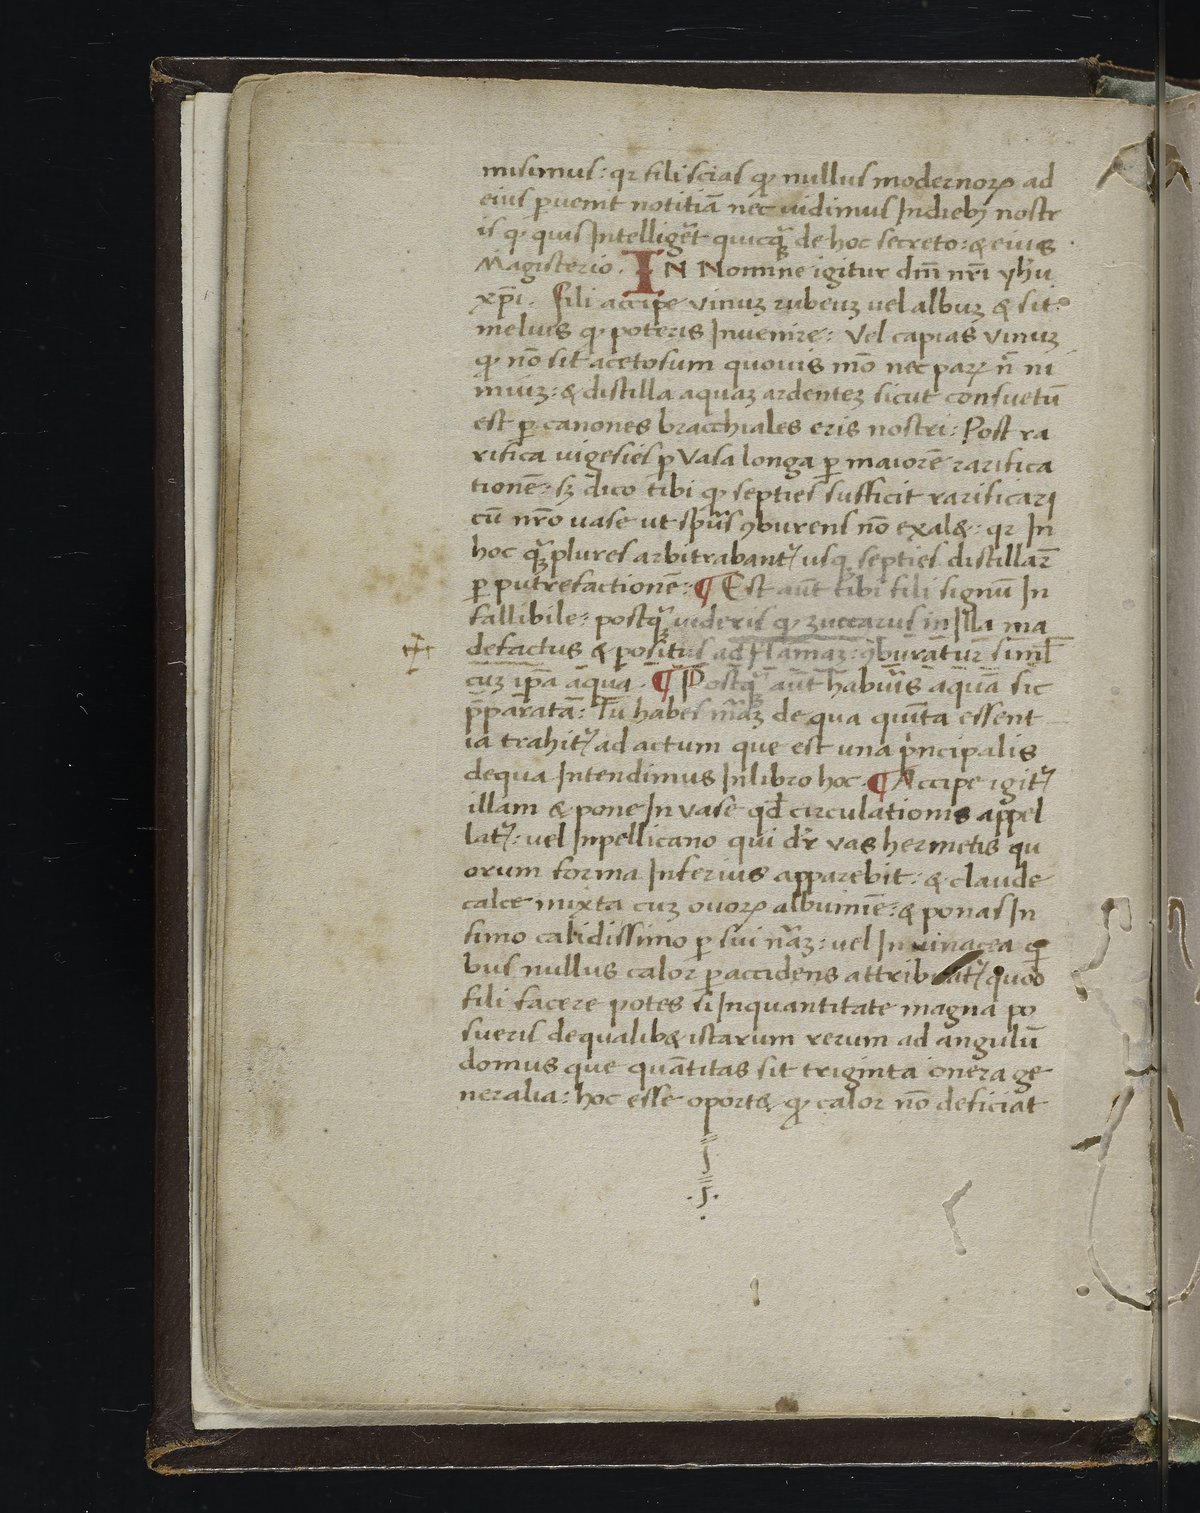 misimus: qꝛ fili scias qꝫ nullus modernoꝝ ad
eius ꝑuenit notitiā nec uidimus Indiebꝫ nostr
is qꝫ quis Intelligēt quicqꝫ de hoc secreto: & eius
Magisterio. IN Nomine igitur dn̄i nr̄i yh̄u
xp̄i. fili accipe vinuꝫ rubeuꝫ uel albuꝫ & sit
melius qꝫ poteris Inuenire: Vel capias vinuꝫ
qꝫ nō sit acetosum quouis mō nec paꝝ n̄ ni
miuꝫ: & distilla aquaꝫ ardenteꝫ sicut consuetū
est ꝑ canones bracchiales eris nostri: Post ra
rifica uigesies ꝑ Vasa longa ꝑ maiorē rarifica
tionē: sꝫ dico tibi qꝫ septies sufficit rarificari
cū nr̄o uase ut sp̄us ꝯburens nō exal&: qꝛ In
hoc qꝫ plures arbitrabant᷑ usqꝫ septies distillar̄
ꝑ putrefactionē: ¶ Est aūt tibi fili signū In
fallibile: postqꝫ uideris qꝫ zuccarus in Illa ma
defactus & positus ad flamaꝫ: ꝯburatur siml̄
cuꝫ ip̄a aqua. ¶ Postqꝫ aūt habuis aquā sic
p̄paratā: Tu habes mᷓaꝫ de qua quīta essent
ia trahit᷑ ad actum que est una pͥncipalis
dequa Intendimus Inlibro hoc. ¶ Accipe igit᷑
illam & pone In vase qđ circulationis appel
lat᷑: uel Inpellicano qui dr̄ vas hermetis qu
orum forma Inferius apparebit: & claude
calce mixta cuꝫ ouoꝝ albumine: & ponas In
fimo calidissimo ꝑ sui nᷓaꝫ: uel In uinacea qͥ
bus nullus calor ꝑaccidens attribuat᷑ quod
fili facere potes si Inquantitate magna po
sueris dequalib& istarum rerum ad angulū
domus que quātitas sit triginta onera ge
neralia: hoc esse oport& qꝫ calor nō deficiat